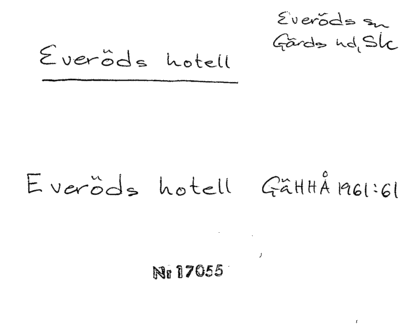 Everöds sn
Gärds hd, Sk
Everöds hotell
Everöds hotell GäHHÅ 1961:61
Nr 17055